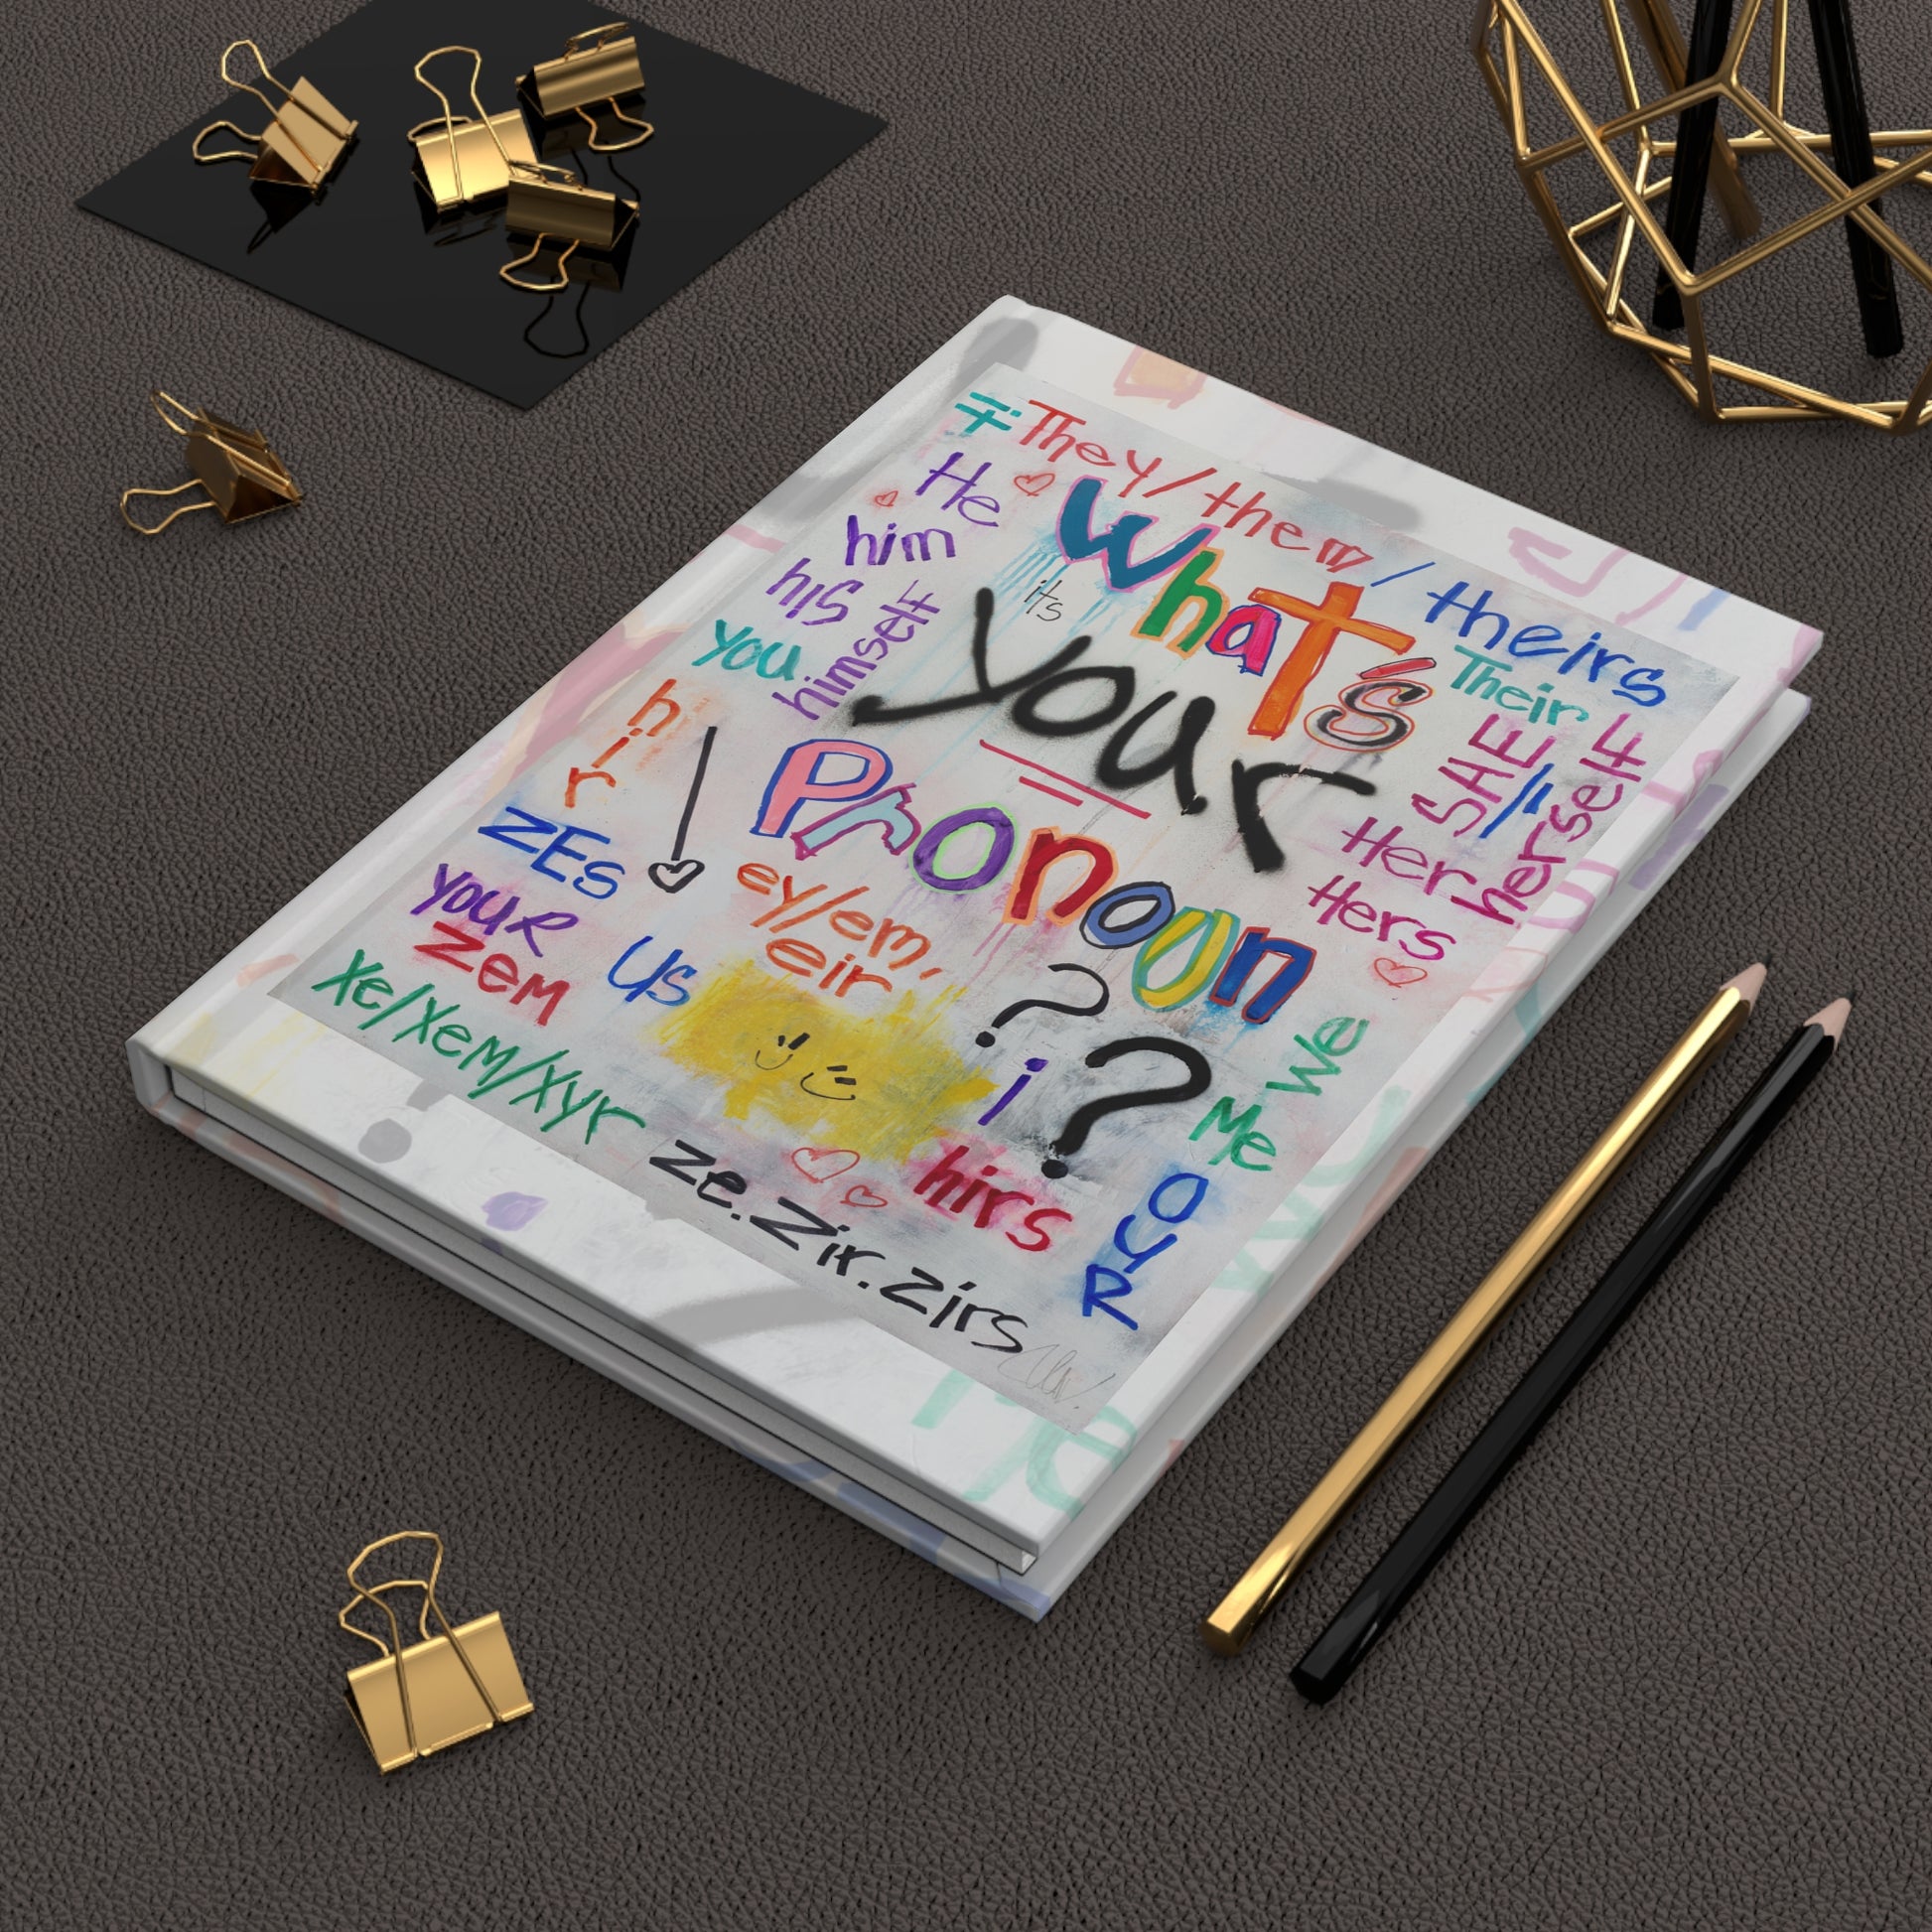 They/them/theirs
He
him
his
himself
you
What's
its
your
Pronoun
??
Their
SHE/
herself
Her
Hers
hir
ZEs
your
zem
us
ey/em,
eir
i
We
Me
Xe/Xem/Xyr
ze.Zir.zirs
hirs
OUR